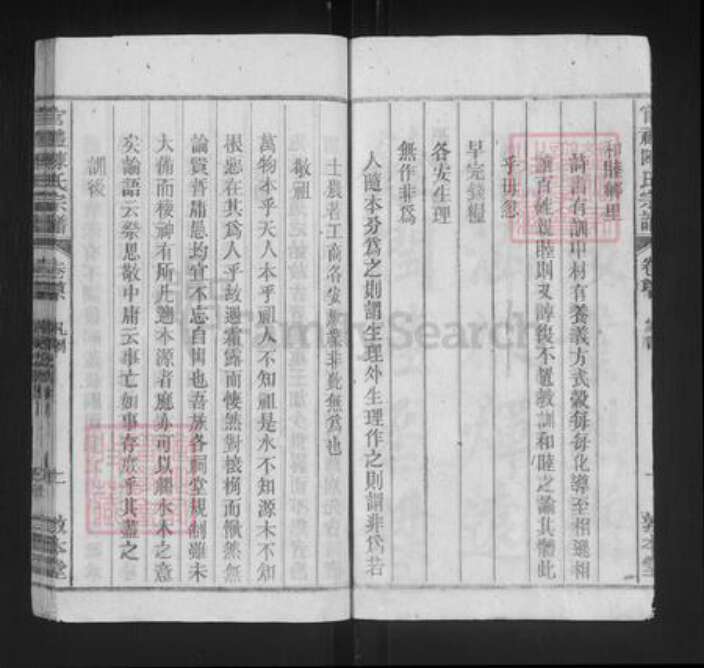 和睦鄉里
詩書有訓中材有養義方式穀每每化導至相遜相
讓百姓親睦則又諄後不遺教訓和睦之諭其體此
乎毋忽
早完錢糧
各安生理
無作非為
人隨本分為之則謂生理外生理作之則謂非為若
士農者工商各安無業非此無為也
敬祖
萬物本乎天人本乎祖人不知祖是水不知源木不知
根惡在其為人乎故遇霜露而悽然對榱桷而愀然無
論賢哲庸愚均宜不忘自出也吾族各祠堂規制雖未
大備而棲神有所凡溯本源者庶亦可以觸水木之意
矣論語云祭思敬中庸云事亡如事存庶乎其盡之
訓後
陳氏宗譜
卷首
凡例
敦本堂
FamilySearch